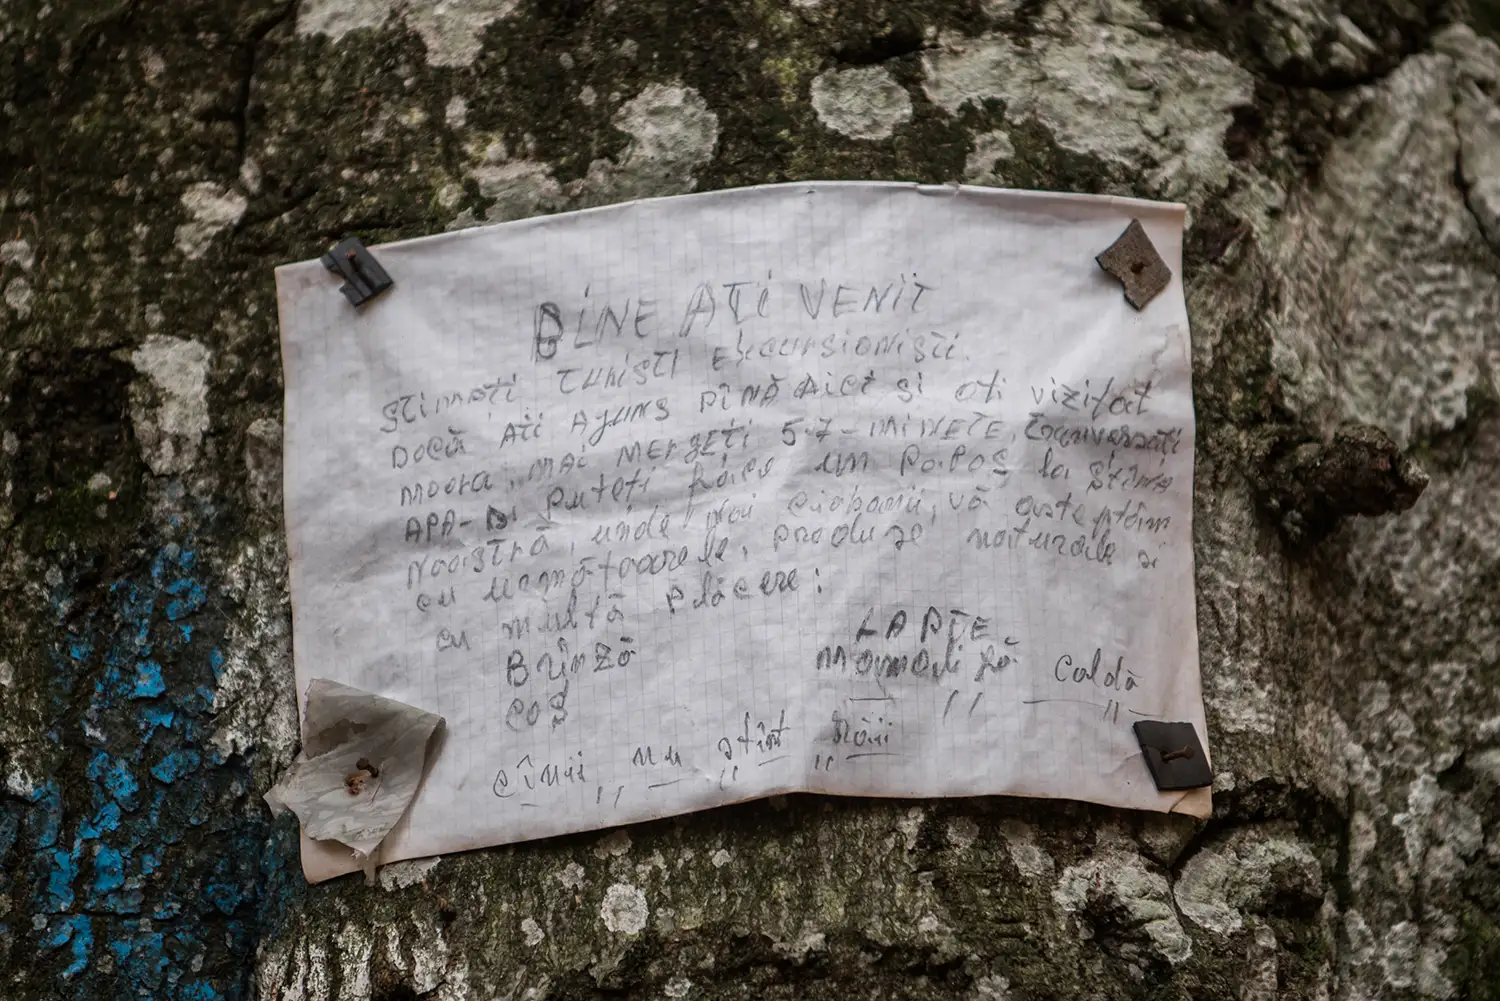 BINE AȚI VENIT
Stimați turiști excursioniști.
Docă ați ajuns pînă aici și ați vizitat
moara, mai mergeți 5-7-minute, traversați
APA-și puteți face un popas la stîna
noastră, unde noi ciobanii, vă așteptăm
cu următoarele, produse naturale și
cu multă plăcere:
Brînză LAPTE
caș mămăligă caldă
cîinii nu sînt răii